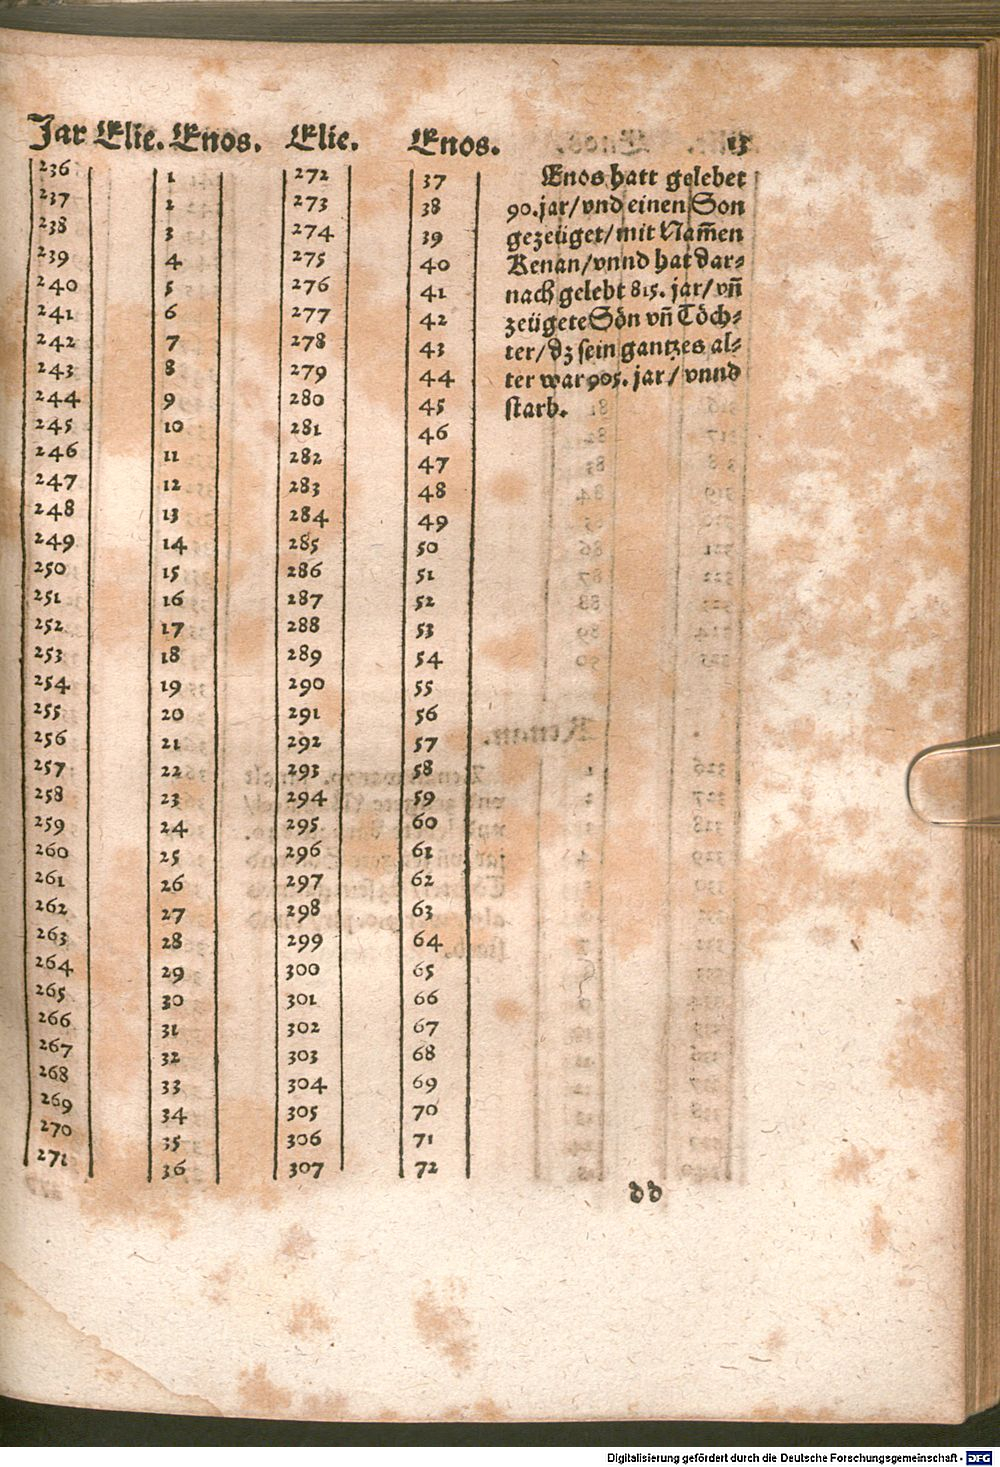 Jar Elie. Enos. Elie. Enos. 13
236 1 272 37
237 2 273 38
238 3 274 39
239 4 275 40
240 5 276 41
241 6 277 42
242 7 278 43
243 8 279 44
244 9 280 45
245 10 281 46
246 11 282 47
247 12 283 48
248 13 284 49
249 14 285 50
250 15 286 51
251 16 287 52
252 17 288 53
253 18 289 54
254 19 290 55
255 20 291 56
256 21 292 57
257 22 293 58
258 23 294 59
259 24 295 60
260 25 296 61
261 26 297 62
262 27 298 63
263 28 299 64
264 29 300 65
265 30 301 66
266 31 302 67
267 32 303 68
268 33 304 69
269 34 305 70
270 35 306 71
271 36 307 72
Enos hatt gelebet
90. jar/ vnd einen Son
gezeüget/ mit Nam̄en
Kenan/ vnnd hat dar⸗
nach gelebt 815. jar/ vn̄
zeügete Sön vn̄ Töch⸗
ter/ dz sein gantzes al⸗
ter war 905. jar/ vnnd
starb.
dd
Digitalisierung gefördert durch die Deutsche Forschungsgemeinschaft - DFG